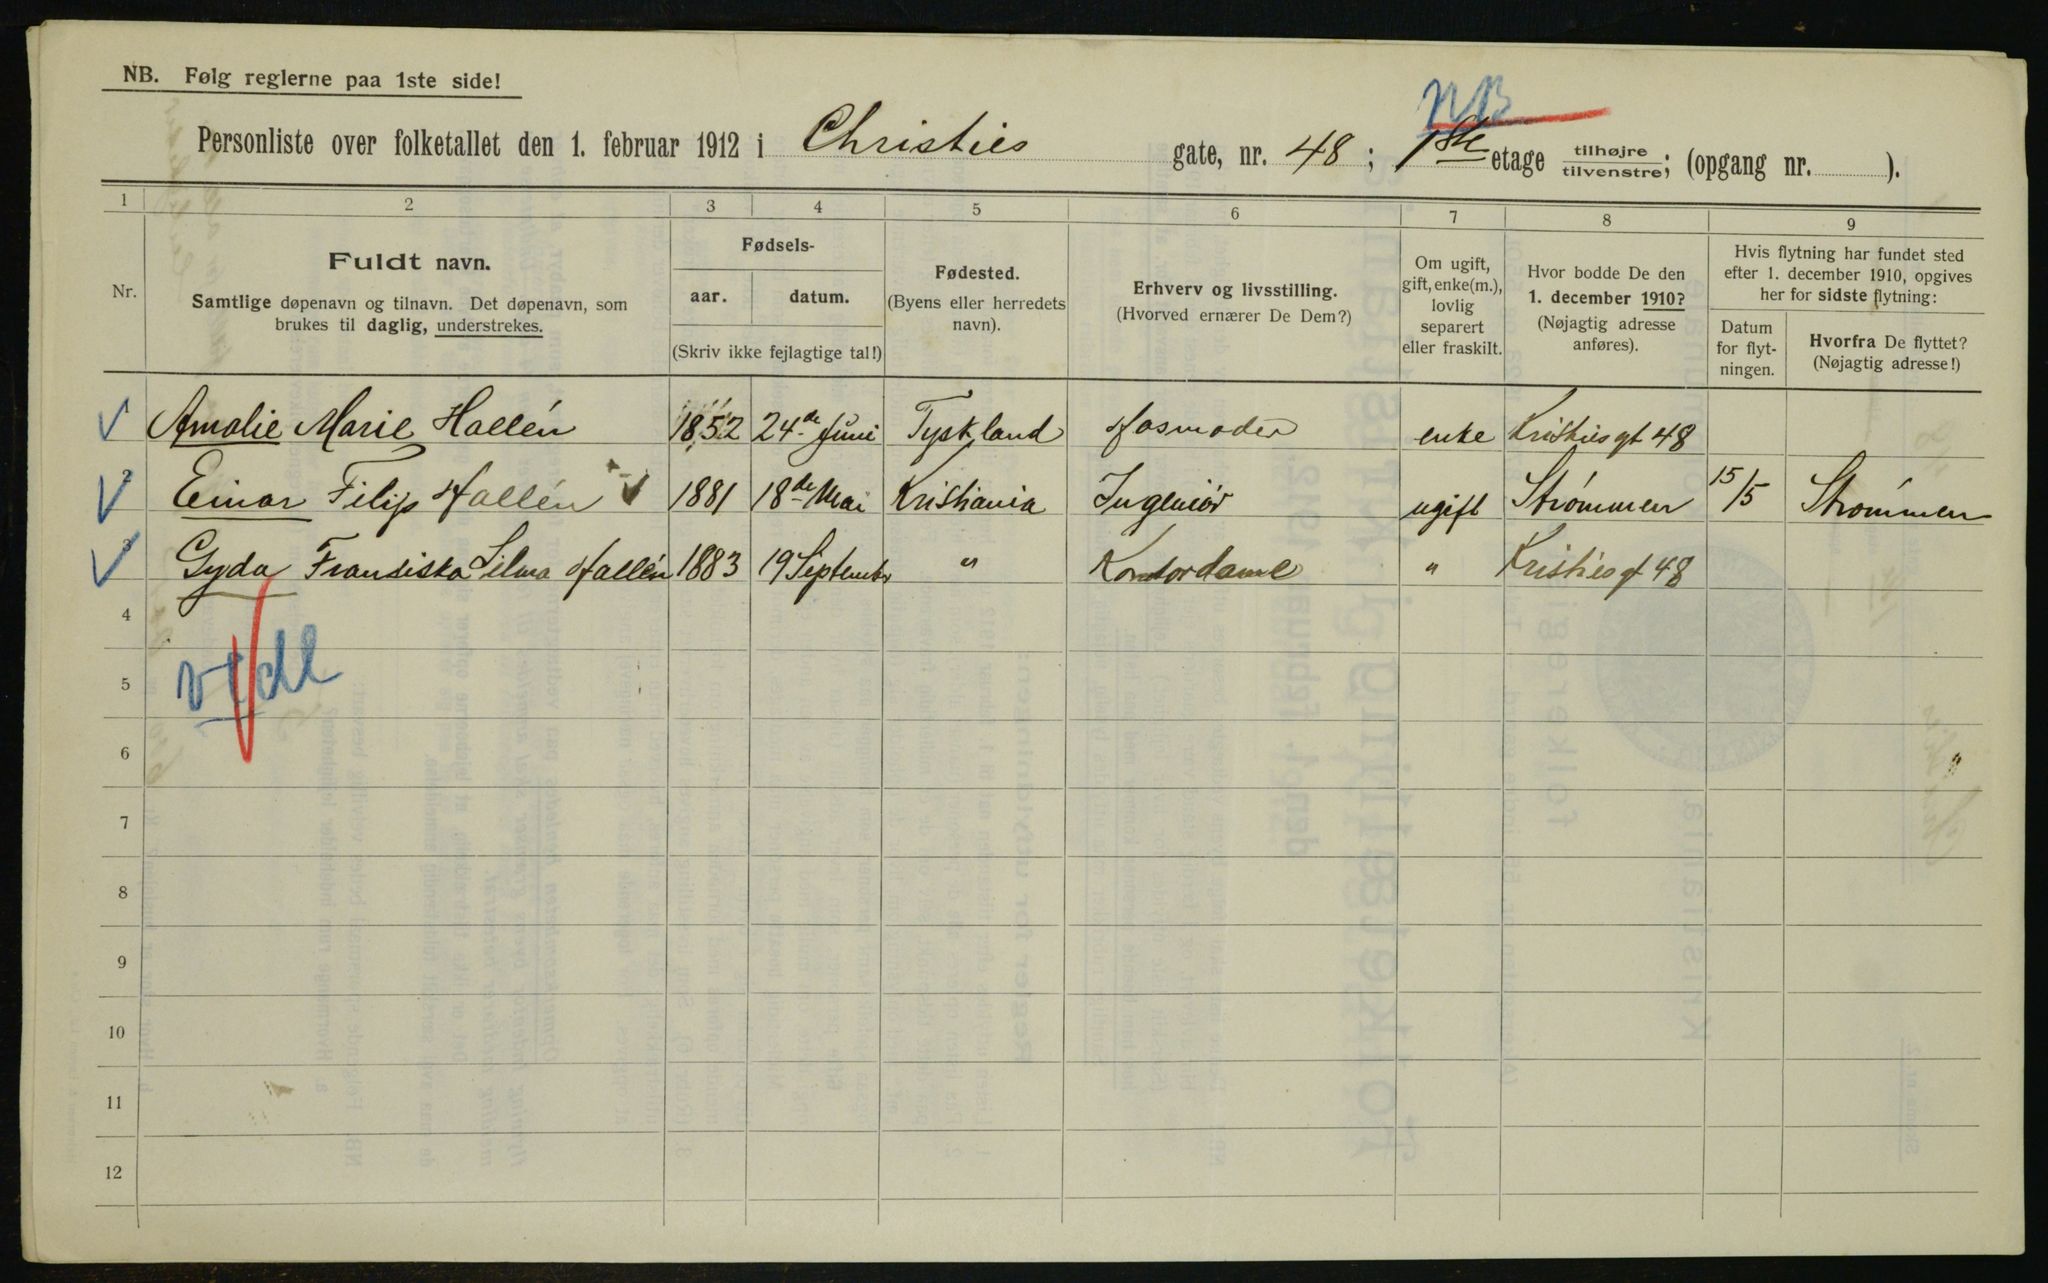 NB. Følg reglerne paa 1ste side!
NB
Personliste over folketallet den 1. februar 1912 i Christies gate, nr. 48; 1ste etage tilhøjre/tilvenstre; (opgang nr. ).
1 2 3 4 5 6 7 8 9
Nr.
Fuldt navn.
Samtlige døpenavn og tilnavn. Det døpenavn, som
brukes til daglig, understrekes.
Fødsels-
aar. datum.
(Skriv ikke fejlagtige tal!)
Fødested.
(Byens eller herredets
navn).
Erhverv og livsstilling.
(Hvorved ernærer De Dem?)
Om ugift,
gift, enke(m.),
lovlig
separert
eller fraskilt.
Hvor bodde De den
1. december 1910?
(Nøjagtig adresse
anføres).
Hvis flytning har fundet sted
efter 1. december 1910, opgives
her for sidste flytning:
Datum
for flyt-
ningen.
Hvorfra De flyttet?
(Nøjagtig adresse!)
1 Amalie Marie Hallén 1852 24de Juni Tyskland Husmoder enke Kristiesgt 48
2 Einar Filip Hallén 1881 18de Mai Kristiania Ingeniør ugift Strømmen 15/5 Strømmen
3 Gyda Fransiska Selma Hallén 1883 19 September " Kontordame " Kristiesgt 48
4
5
6
7
8
9
10
11
12